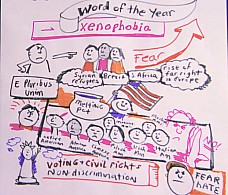 Word of the Year
xenophobia
Fear
Syrian refugees
Brexit
S. Africa
rise of far right in Europe
E Pluribus Unum
Melting Pot
Native American
African
Voting + civil rights
NON-discrimination
FEAR
HATE